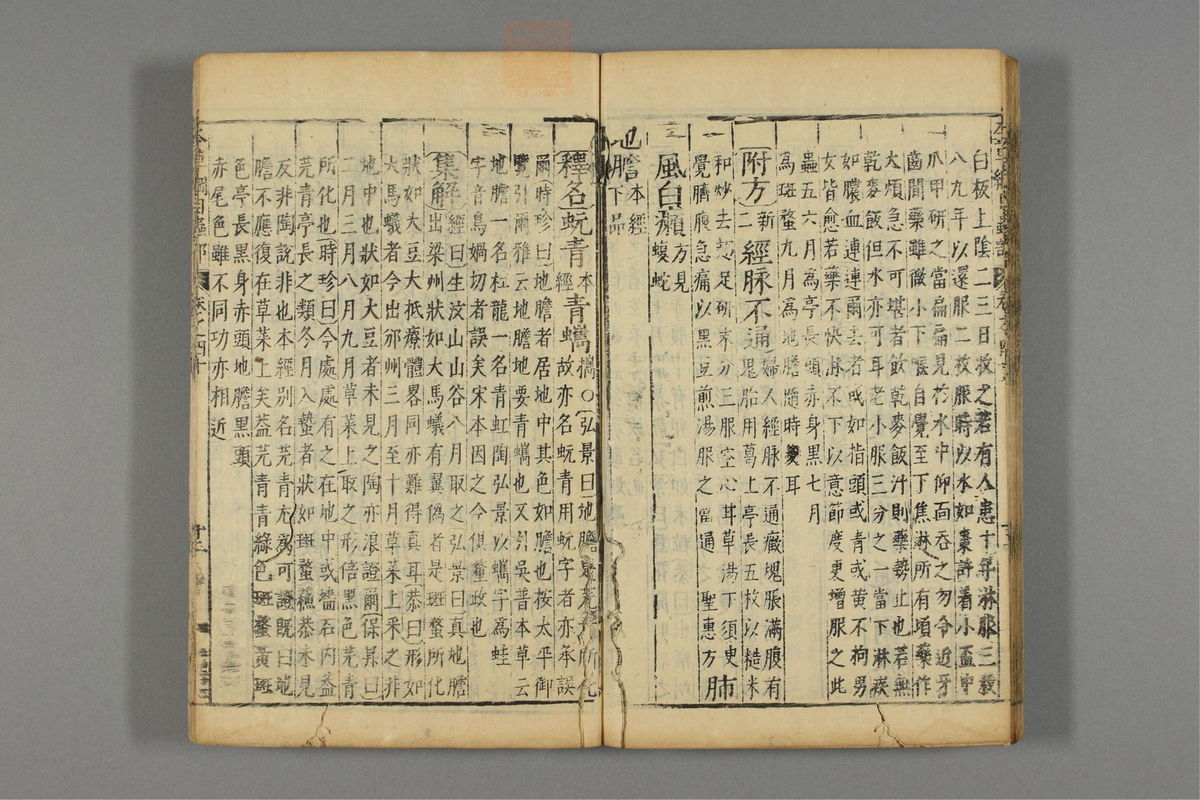 白板上陰二三日收之若有人患十年淋服三枚
八九年以還服二枚服時以水如棗許着小盃中
爪甲研之當扁扁見於水中仰面吞之勿令近牙
齒間藥雖微小下喉自覺至丁焦淋所有頃藥作
大煩急不可堪者飲乾麥飯汁則藥勢止也若無
乾麥飯但水亦可耳老小服三分之一當下淋疾
如膿血連連爾去者或如指頭或青或黃不拘男
女皆愈若藥不快淋不下以意節度更增服之此
蟲五六月為亭長頭赤身黑七月
為斑蝥九月為地膽隨時變耳
附方 新二 經脉不通 婦人經脉不通癥塊脹滿腹有
鬼胎用葛上亭長五枚以糙米
和炒去翅足研末分三服空心甘草湯下須臾
覺臍腹急痛以黑豆煎湯服之當通 聖惠方 肺
風白癩 方見蝮蛇
地膽 本經下品
釋名 蚖青 本經 青蠵 蠵○弘景曰地膽是芫青所化
故亦名蚖青用蚖字者亦承誤
爾時珍曰地膽者居地中其色如膽也按太平御
覽引爾雅云地膽地要青蠵也又引吳普本草云
地膽一名杜龍一名青虹陶弘景以蠵字為蛙
字音烏媧切者誤矣宋本因之今俱釐政也
集解 經曰生汶山山谷八月取之弘景曰真地膽
出梁州狀如大馬蟻有翼偽者是斑蝥所化
狀如大豆大抵療體畧同亦難得真耳恭曰形如
大馬蟻者今出邠州三月至十月草菜上采之非
地中也狀如大豆者未見之陶亦浪證爾保昇曰
二月三月八月九月草菜上取之形倍黑色芫青
所化也時珍曰今處處有之在地中或墻石內蓋
芫青亭長之類冬月入蟄者狀如斑蝥蘇恭未見
反非陶說非也本經別名芫青尤為可證既曰地
膽不應復在草菜上矣蓋芫青青綠色斑蝥黃斑
色亭長黑身赤頭地膽黑頭
赤尾色雖不同功亦相近